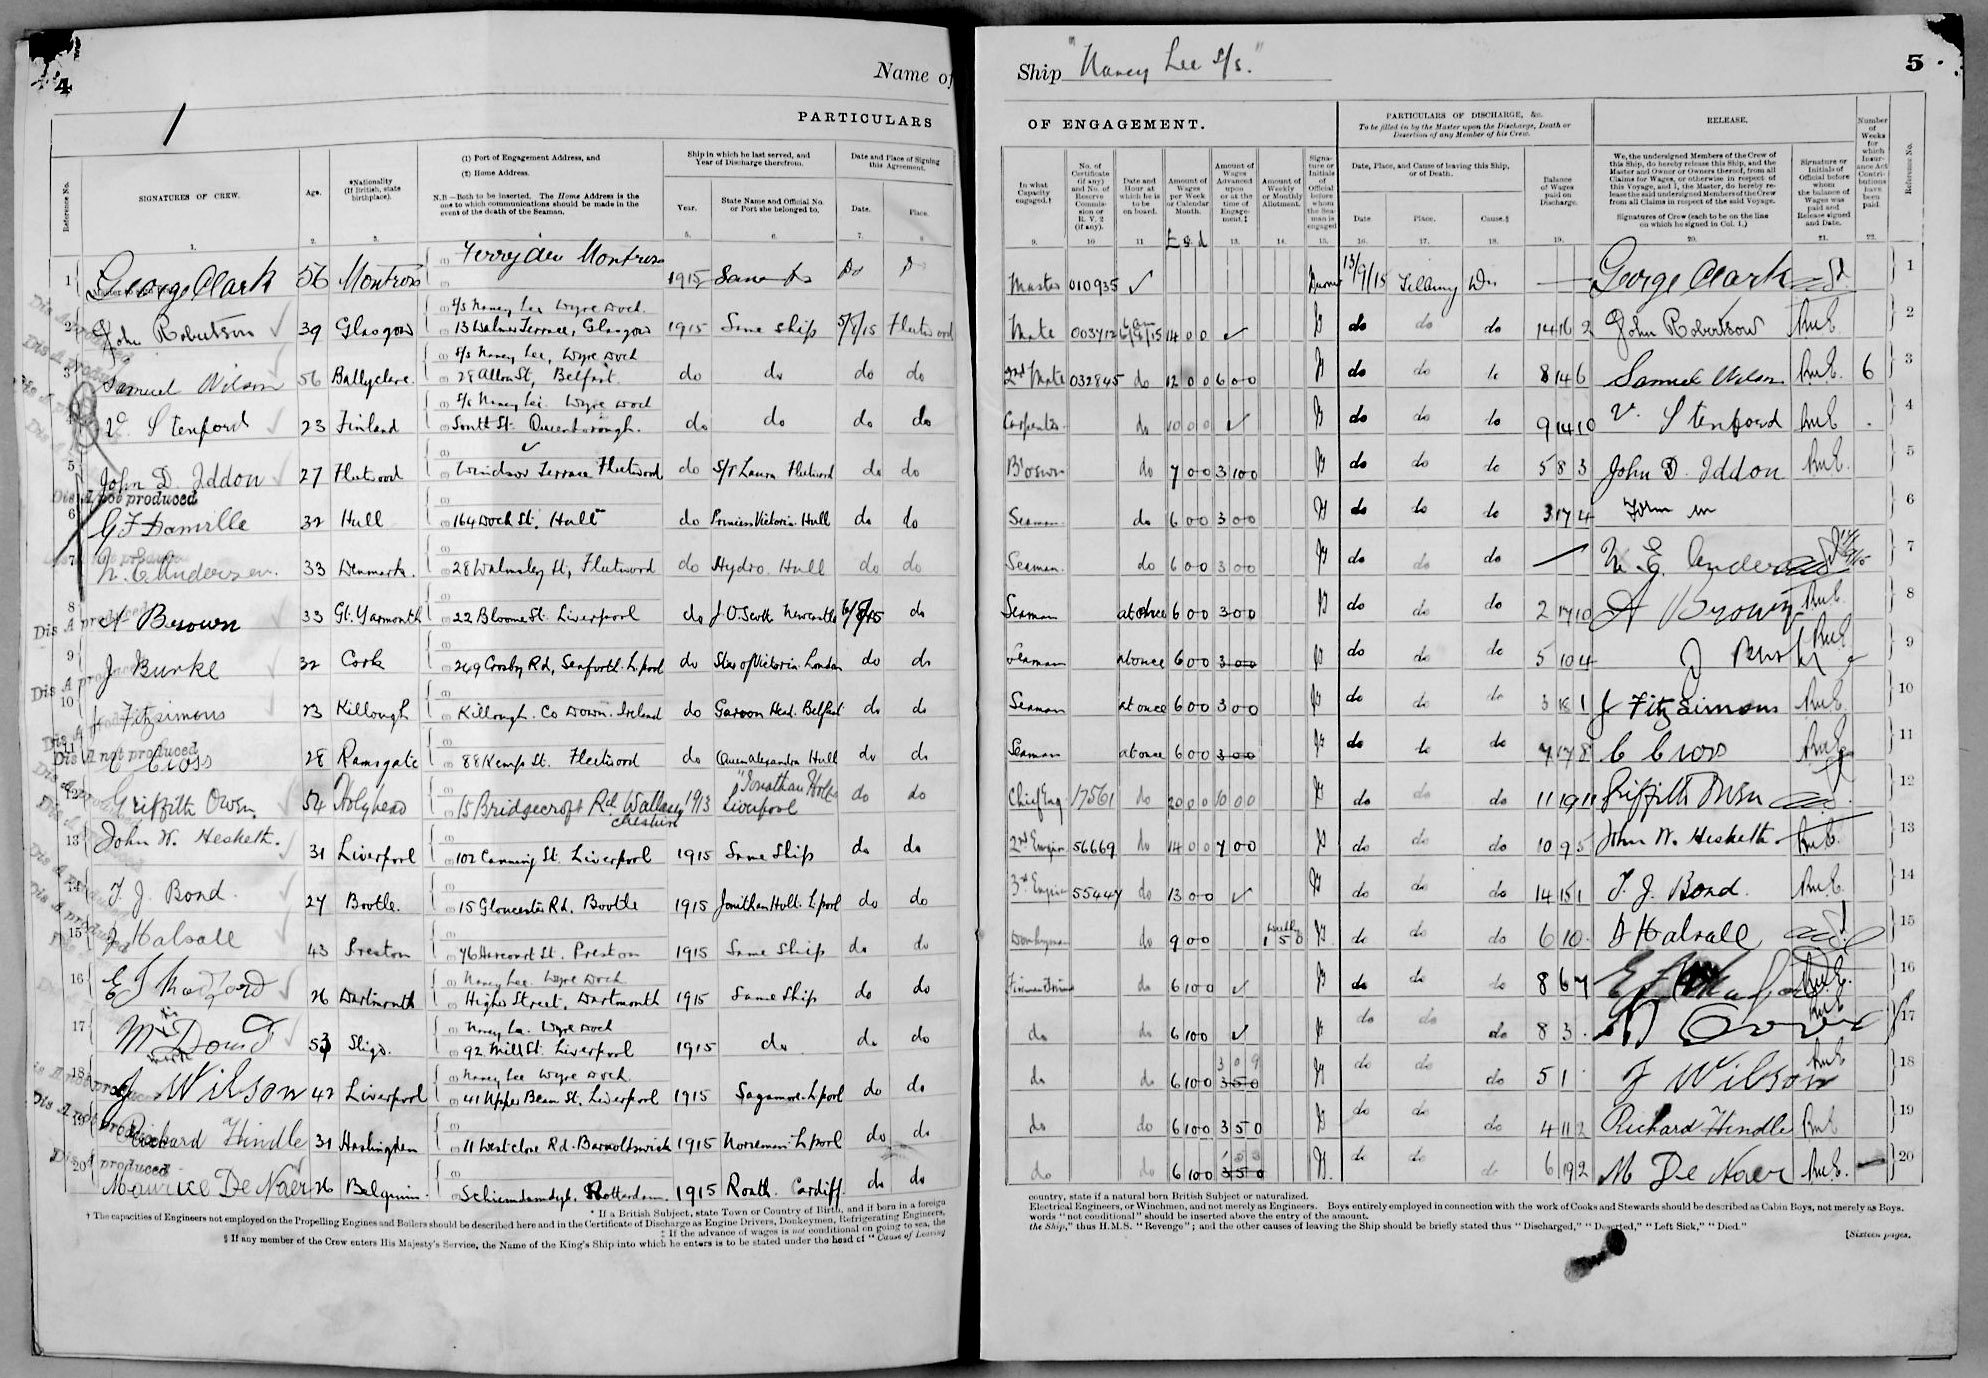 4
Name of
1
PARTICULARS
Reference No.
SIGNATURES OF CREW.
Age.
*Nationality (If British, state birthplace).
(1) Port of Engagement Address, and
(2) Home Address.
N.B.—Both to be inserted. The Home Address is the one to which communications should be made in the event of the death of the Seaman.
Ship in which he last served, and Year of Discharge therefrom.
Year.
State Name and Official No. or Port she belonged to.
Date and Place of Signing this Agreement.
Date.
Place.
1 George Clark 56 Montrose Ferryden Montrose 1915 Same
2 John Robertson 39 Glasgow S/s Nancy Lee Wyre Dock 13 Walmer Terrace, Glasgow 1915 Same ship 5/8/15 Fleetwood
3 Samuel Wilson 56 Ballyclare S/s Nancy Lee, Wyre Dock 28 Allon St, Belfast. do do do do
4 V. Stenford 23 Finland S/s Nancy Lee. Wyre Dock South St. Queenborough. do do do do
5 John D. Iddon 27 Fleetwood Windsor Terrace Fleetwood do S/T Laura Fleetwood do do
Dis A not produced
6 G F Damille 32 Hull 164 Dock St. Hull do Princess Victoria Hull do do
7 N. E. Andersen 33 Denmark. 28 Walmsley St, Fleetwood do Hydro Hull do do
8 A Brown 33 Gt. Yarmouth 22 Bloome St. Liverpool do J.O. Scott Newcastle 6/8/15 do
9 J Burke 32 Cork 269 Crosby Rd, Seaforth L'pool do Star of Victoria London do do
10 J Fitzsimons 23 Killough Killough. Co Down. Ireland do Garron Head. Belfast do do
Dis A not produced
11 C Cross 28 Ramsgate 88 Kemp St. Fleetwood do Queen Alexandra Hull do do
12 Griffith Owen 54 Holyhead 15 Bridgecroft Rd Wallasey Cheshire 1913 "Jonathan Holt Liverpool do do
13 John W. Hesketh. 31 Liverpool 102 Canning St. Liverpool 1915 Same Ship do do
14 T. J. Bond. 27 Bootle. 15 Gloucester Rd. Bootle 1915 Jonathan Holt. L'pool do do
15 J Halsall 43 Preston 76 Harcourt St. Preston 1915 Same Ship do do
16 26 Dartmouth Nancy Lee. Wyre Dock Higher Street, Dartmouth 1915 Same Ship do do
17 53 Sligo. Nancy Lee. Wyre Dock 92 Mill St. Liverpool 1915 do do do
18 J Wilson 42 Liverpool Nancy Lee Wyre Dock 41 Upper Beau St. Liverpool 1915 Sagamore. L'pool do do
19 Richard Hindle 31 Haslingden 11 Westclose Rd. Barnoldswick 1915 Norseman L'pool do do
20 Maurice De Naer 26 Belgium. Schiemdamdyk. Rotterdam. 1915 Roath. Cardiff. do do
* If a British Subject, state Town or Country of Birth, and if born in a foreign
† The capacities of Engineers not employed on the Propelling Engines and Boilers should be described here and in the Certificate of Discharge as Engine Drivers, Donkeymen, Refrigerating Engineers,
‡ If the advance of wages is not conditional on going to sea, the
§ If any member of the Crew enters His Majesty's Service, the Name of the King's Ship into which he enters is to be stated under the head of "Cause of Leaving
Ship "Nancy Lee S/s."
5
OF ENGAGEMENT.
In what Capacity engaged.†
No. of Certificate (if any) and No. of Reserve Commission or R. V. 2 (if any).
Date and Hour at which he is to be on board.
Amount of Wages per Week or Calendar Month.
Amount of Wages Advanced upon or at the time of Engagement.‡
Amount of Weekly or Monthly Allotment.
Signature or Initials of Official before whom the Seaman is engaged
PARTICULARS OF DISCHARGE, &c.
To be filled in by the Master upon the Discharge, Death or Desertion of any Member of his Crew.
Date, Place, and Cause of leaving this Ship, or of Death.
Date.
Place.
Cause.§
Balance of Wages paid on Discharge.
RELEASE.
We, the undersigned Members of the Crew of this Ship, do hereby release this Ship, and the Master and Owner or Owners thereof, from all Claims for Wages, or otherwise in respect of this Voyage, and I, the Master, do hereby release the said undersigned Members of the Crew from all Claims in respect of the said Voyage.
Signatures of Crew (each to be on the line on which he signed in Col. 1.)
Signature or Initials of Official before whom the balance of Wages was paid and Release signed and Date.
Number of Weeks for which Insurance Act Contributions have been paid.
Reference No.
£ s d
Master 010935 13/9/15 George Clark 1
Mate 003712 14 0 0 do do do 14 16 2 John Robertson 2
2nd Mate 032845 do 12 0 0 6 0 0 do do do 8 14 6 Samuel Wilson 6 3
Carpenter do 10 0 0 do do do 9 14 10 V. Stenford 4
Bosun do 7 0 0 3 10 0 do do do 5 8 3 John D. Iddon 5
Seaman do 6 0 0 3 0 0 do do do 3 17 4 6
Seaman do 6 0 0 3 0 0 do do do N E Andersen 7
Seaman at once 6 0 0 3 0 0 do do do 2 17 10 A Brown 8
Seaman at once 6 0 0 3 0 0 do do do 5 10 4 J Burke 9
Seaman at once 6 0 0 3 0 0 do do do 3 18 1 J Fitzsimons 10
Seaman at once 6 0 0 3 0 0 do do do 7 17 8 C Cross 11
Chief Eng 17561 do 20 0 0 10 0 0 do do do 11 19 11 Griffith Owen 12
2nd Engin 56669 do 14 0 0 7 0 0 do do do 10 9 5 John W. Hesketh. 13
3rd Engin 55447 do 13 0 0 do do do 14 15 1 T. J. Bond. 14
Donkeyman do 9 0 0 weekly 1 5 0 do do do 6 10 J Halsall 15
do 6 10 0 do do do 8 6 7 16
do do 6 10 0 do do do 8 3 17
do do 6 10 0 3 0 9 3 5 0 do do do 5 1 J Wilson 18
do do 6 10 0 3 5 0 do do do 4 11 2 Richard Hindle 19
do do 6 10 0 3 5 0 do do do 6 19 2 M De Naer 20
country, state if a natural born British Subject or naturalized.
Electrical Engineers, or Winchmen, and not merely as Engineers. Boys entirely employed in connection with the work of Cooks and Stewards should be described as Cabin Boys, not merely as Boys.
words "not conditional" should be inserted above the entry of the amount.
the Ship," thus H.M.S. "Revenge"; and the other causes of leaving the Ship should be briefly stated thus "Discharged," "Deserted," "Left Sick," "Died."
[Sixteen pages.